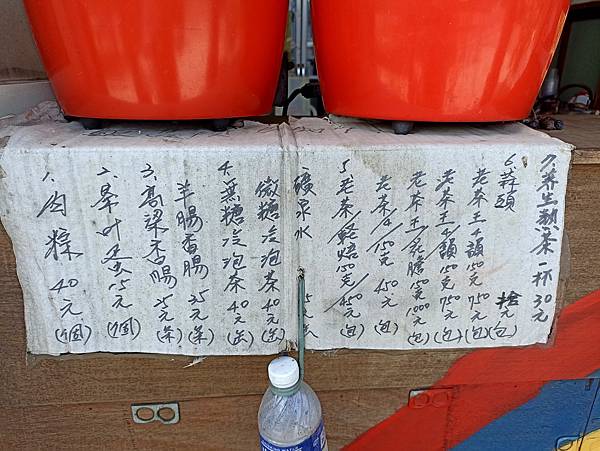 1. 肉粽 40元(1個)
2. 茶叶蛋15元(1個)
3. 高梁香腸35元(条)
羊腸香腸 35元(条)
4. 無糖冷泡茶40元(缶)
微糖冷泡茶40元(缶)
礦泉水 5元(缶)
5. 老茶/輕焙150克/450元(包)
老茶4/150克 450元(包)
老茶王/150克1000元(包)
老茶王/4韻150克750元(包)
老茶王4韻150克750元(包)
6. 蒜頭 元(包)
7. 养生熱茶一杯30元